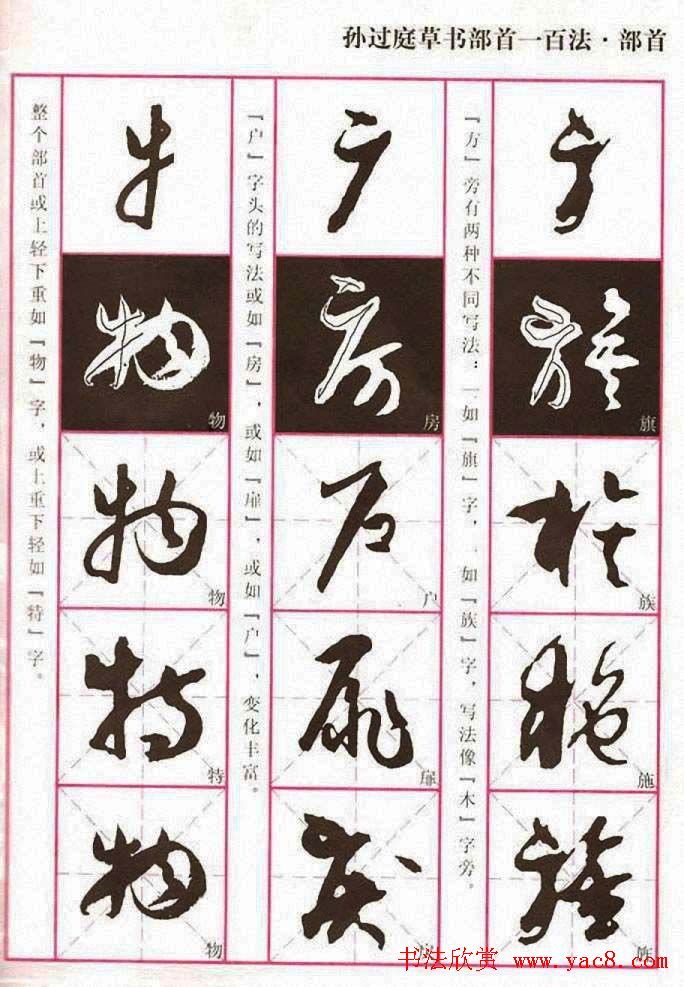 孙过庭草书部首一百法·部首
旗
族
施
『方』旁有两种不同写法：一如『旗』字，一如『族』字，写法像『木』字旁。
房
户
扉
『户』字头的写法或如『房』，或如『扉』，或如『户』，变化丰富。
牛
物
物
特
物
整个部首或上轻下重如『物』字，或上重下轻如『特』字。
书法欣赏 www.yac8.com